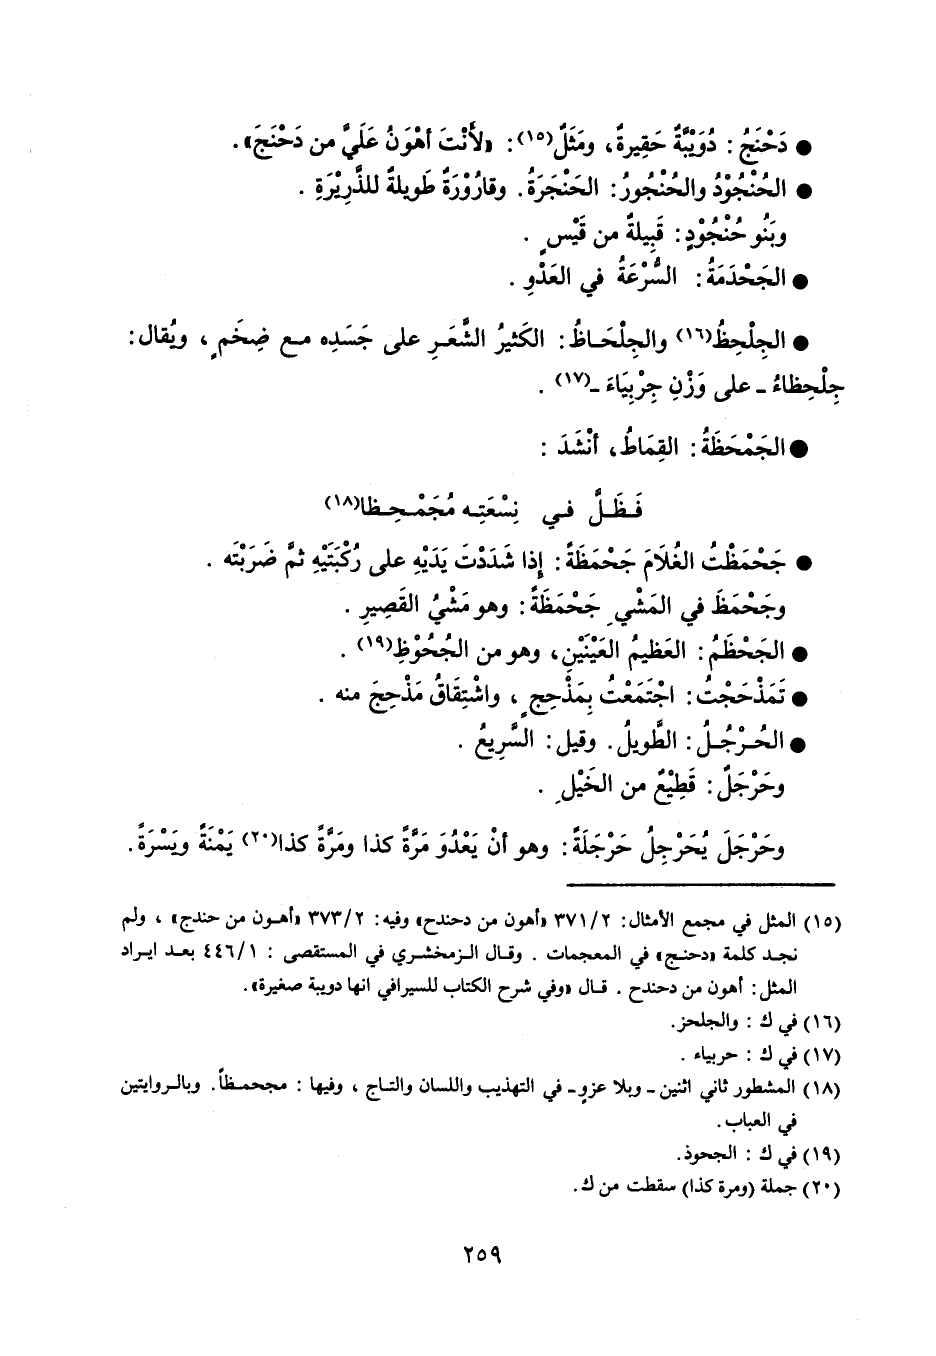 ● دَحْنَجُ: دُوَيْبَّةٌ حَقِيرةٌ، ومَثَلٌ(١٥): «لأَنْتَ أهْوَنُ عَلَيَّ من دَحْنَجَ».
● الحُنْجُوْدُ والحُنْجُورُ: الحَنْجَرَةُ. وقارُوْرَةٌ طَويلةٌ للذَّرِيْرَةِ.
وبَنُو حُنْجُوْدٍ: قَبِيلةٌ من قَيْسٍ.
● الجَحْدَمَةُ: السُّرْعَةُ في العَدْوِ.
● الجِلْحِظُ(١٦) والجِلْحَاظُ: الكَثيرُ الشَّعَرِ على جَسَدِه مع ضِخَمٍ، ويُقال:
جِلْحِظاءُ ـ على وَزْنِ جِرْبِيَاءَ ـ(١٧).
● الجَمْحَظَةُ: القِمَاطُ، أنْشَدَ:
فَظَلَّ في نِسْعَتِه مُجَمْحِظا(١٨)
● جَحْمَظْتُ الغُلَامَ جَحْمَظَةً: إذا شَدَدْتَ يَدَيْهِ على رُكْبَتَيْهِ ثمَّ ضَرَبْتَه.
وجَحْمَظَ في المَشْيِ جَحْمَظَةً: وهو مَشْيُ القَصِيرِ.
● الجَحْظَمُ: العَظيمُ العَيْنَيْنِ، وهو من الجُحُوْظِ(١٩).
● تَمَذْحَجْتُ: اجْتَمَعْتُ بِمَذْحِجٍ، واشْتِقَاقُ مَذْحِجَ منه.
● الحُرْجُلُ: الطَّويلُ. وقيل: السَّرِيعُ.
وحَرْجَلٌ: قَطِيْعٌ من الخَيْلِ.
وحَرْجَلَ يُحَرْجِلُ حَرْجَلَةً: وهو أنْ يَعْدُوَ مَرَّةً كذا ومَرَّةً كذا(٢٠) يَمْنَةً ويَسْرَةً.
(١٥) المثل في مجمع الأمثال: ٣٧١/٢ «أهون من دحندح» وفيه: ٣٧٣/٢ «أهون من حندج»، ولم
نجد كلمة «دحنج» في المعجمات. وقال الزمخشري في المستقصى: ٤٤٦/١ بعد ايراد
المثل: أهون من دحندح. قال «وفي شرح الكتاب للسيرافي انها دويبة صغيرة».
(١٦) في ك: والجلحز.
(١٧) في ك: حربياء.
(١٨) المشطور ثاني اثنين ـ وبلا عزوٍ ـ في التهذيب واللسان والتاج، وفيها: مجحمظاً. وبالروايتين
في العباب.
(١٩) في ك: الجحوذ.
(٢٠) جملة (ومرة كذا) سقطت من ك.
٢٥٩